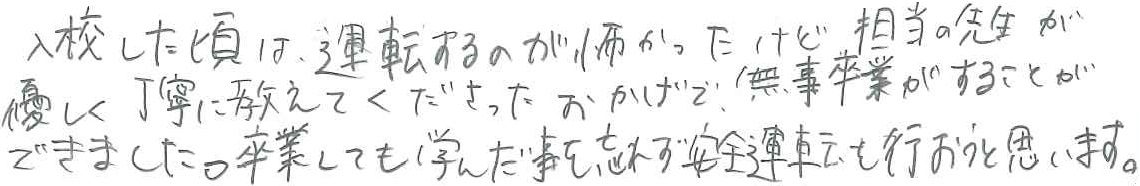 入校した頃は、運転するのが怖かったけど担当の先生が
優しく丁寧に教えてくださったおかげで、無事卒業がすることが
できました。卒業しても学んだ事を忘れず安全運転を行おうと思います。